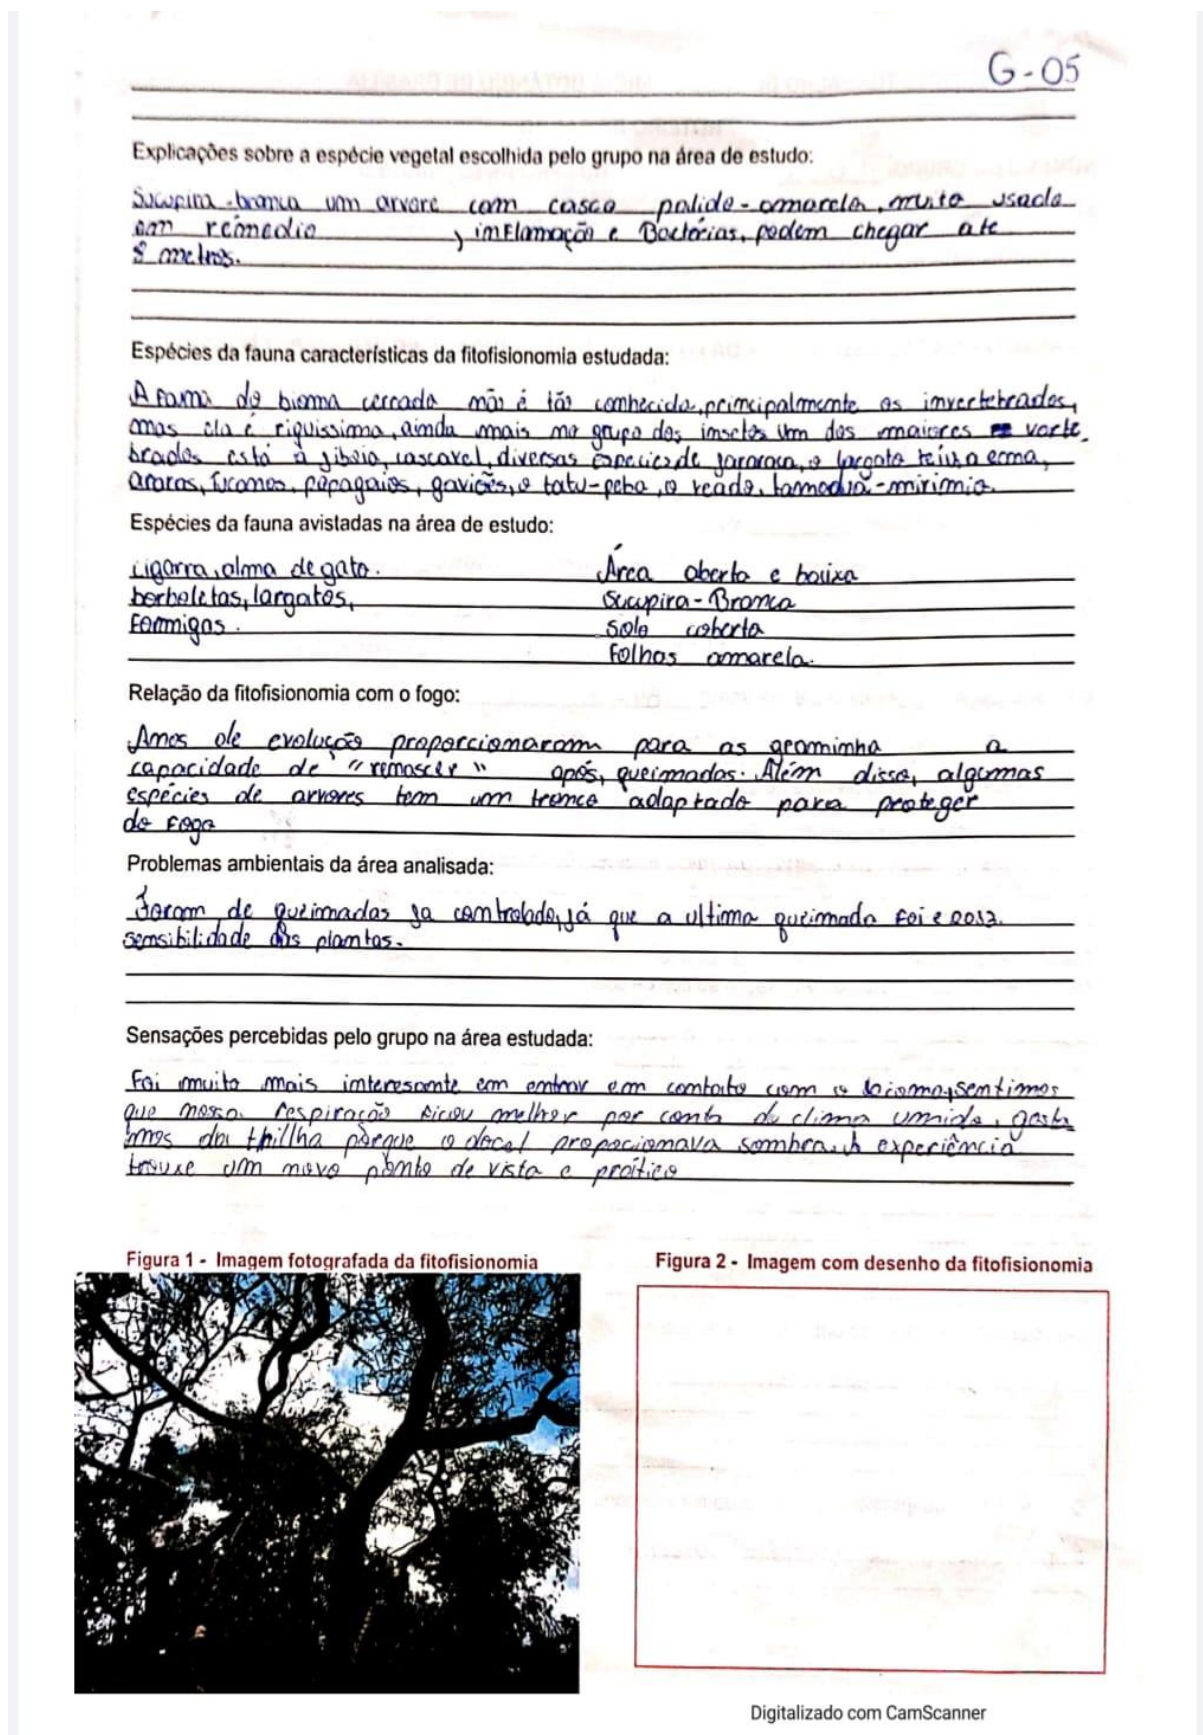 G-05
Explicações sobre a espécie vegetal escolhida pelo grupo na área de estudo:
Sucupira-branca um arvore com casca palido-amarela, muito usada
em remedio , inflamação e Bactérias, podem chegar ate
8 metros.
Espécies da fauna características da fitofisionomia estudada:
A fauna do bioma cerrado não é tão conhecida, principalmente os invertebrados,
mas ela é riquissima, ainda mais no grupo dos insetos um dos maiores verte
brados está a jiboia, cascavel, diversas especies de jararaca, o largato teiu, a ema,
araras, tucanos, papagaios, gaviões, o tatu-peba, o veado, tamaduá-mirimio.
Espécies da fauna avistadas na área de estudo:
cigarra, alma de gato.
borboletas, largatos,
formigas.
Área aberta e baixa
Sucupira-Branca
solo coberto
folhas amarela.
Relação da fitofisionomia com o fogo:
Anos de evolução proporcionaram para as graminha a
capacidade de "renascer" após, queimadas. Além disso, algumas
espécies de arvores tem um tronco adaptado para proteger
do fogo
Problemas ambientais da área analisada:
Foram de queimadas ja controlado, já que a ultima queimada foi e 2017.
sensibilidade das plantas.
Sensações percebidas pelo grupo na área estudada:
Foi muito mais interesante em entrar em contato com o bioma, sentimos
que nossa respiração ficou melhor por conta do clima umido, gosta
mos da thillha porque o docel propocionava sombra. A experiência
trouxe um novo ponto de vista e proítico
Figura 1 - Imagem fotografada da fitofisionomia
Figura 2 - Imagem com desenho da fitofisionomia
Digitalizado com CamScanner